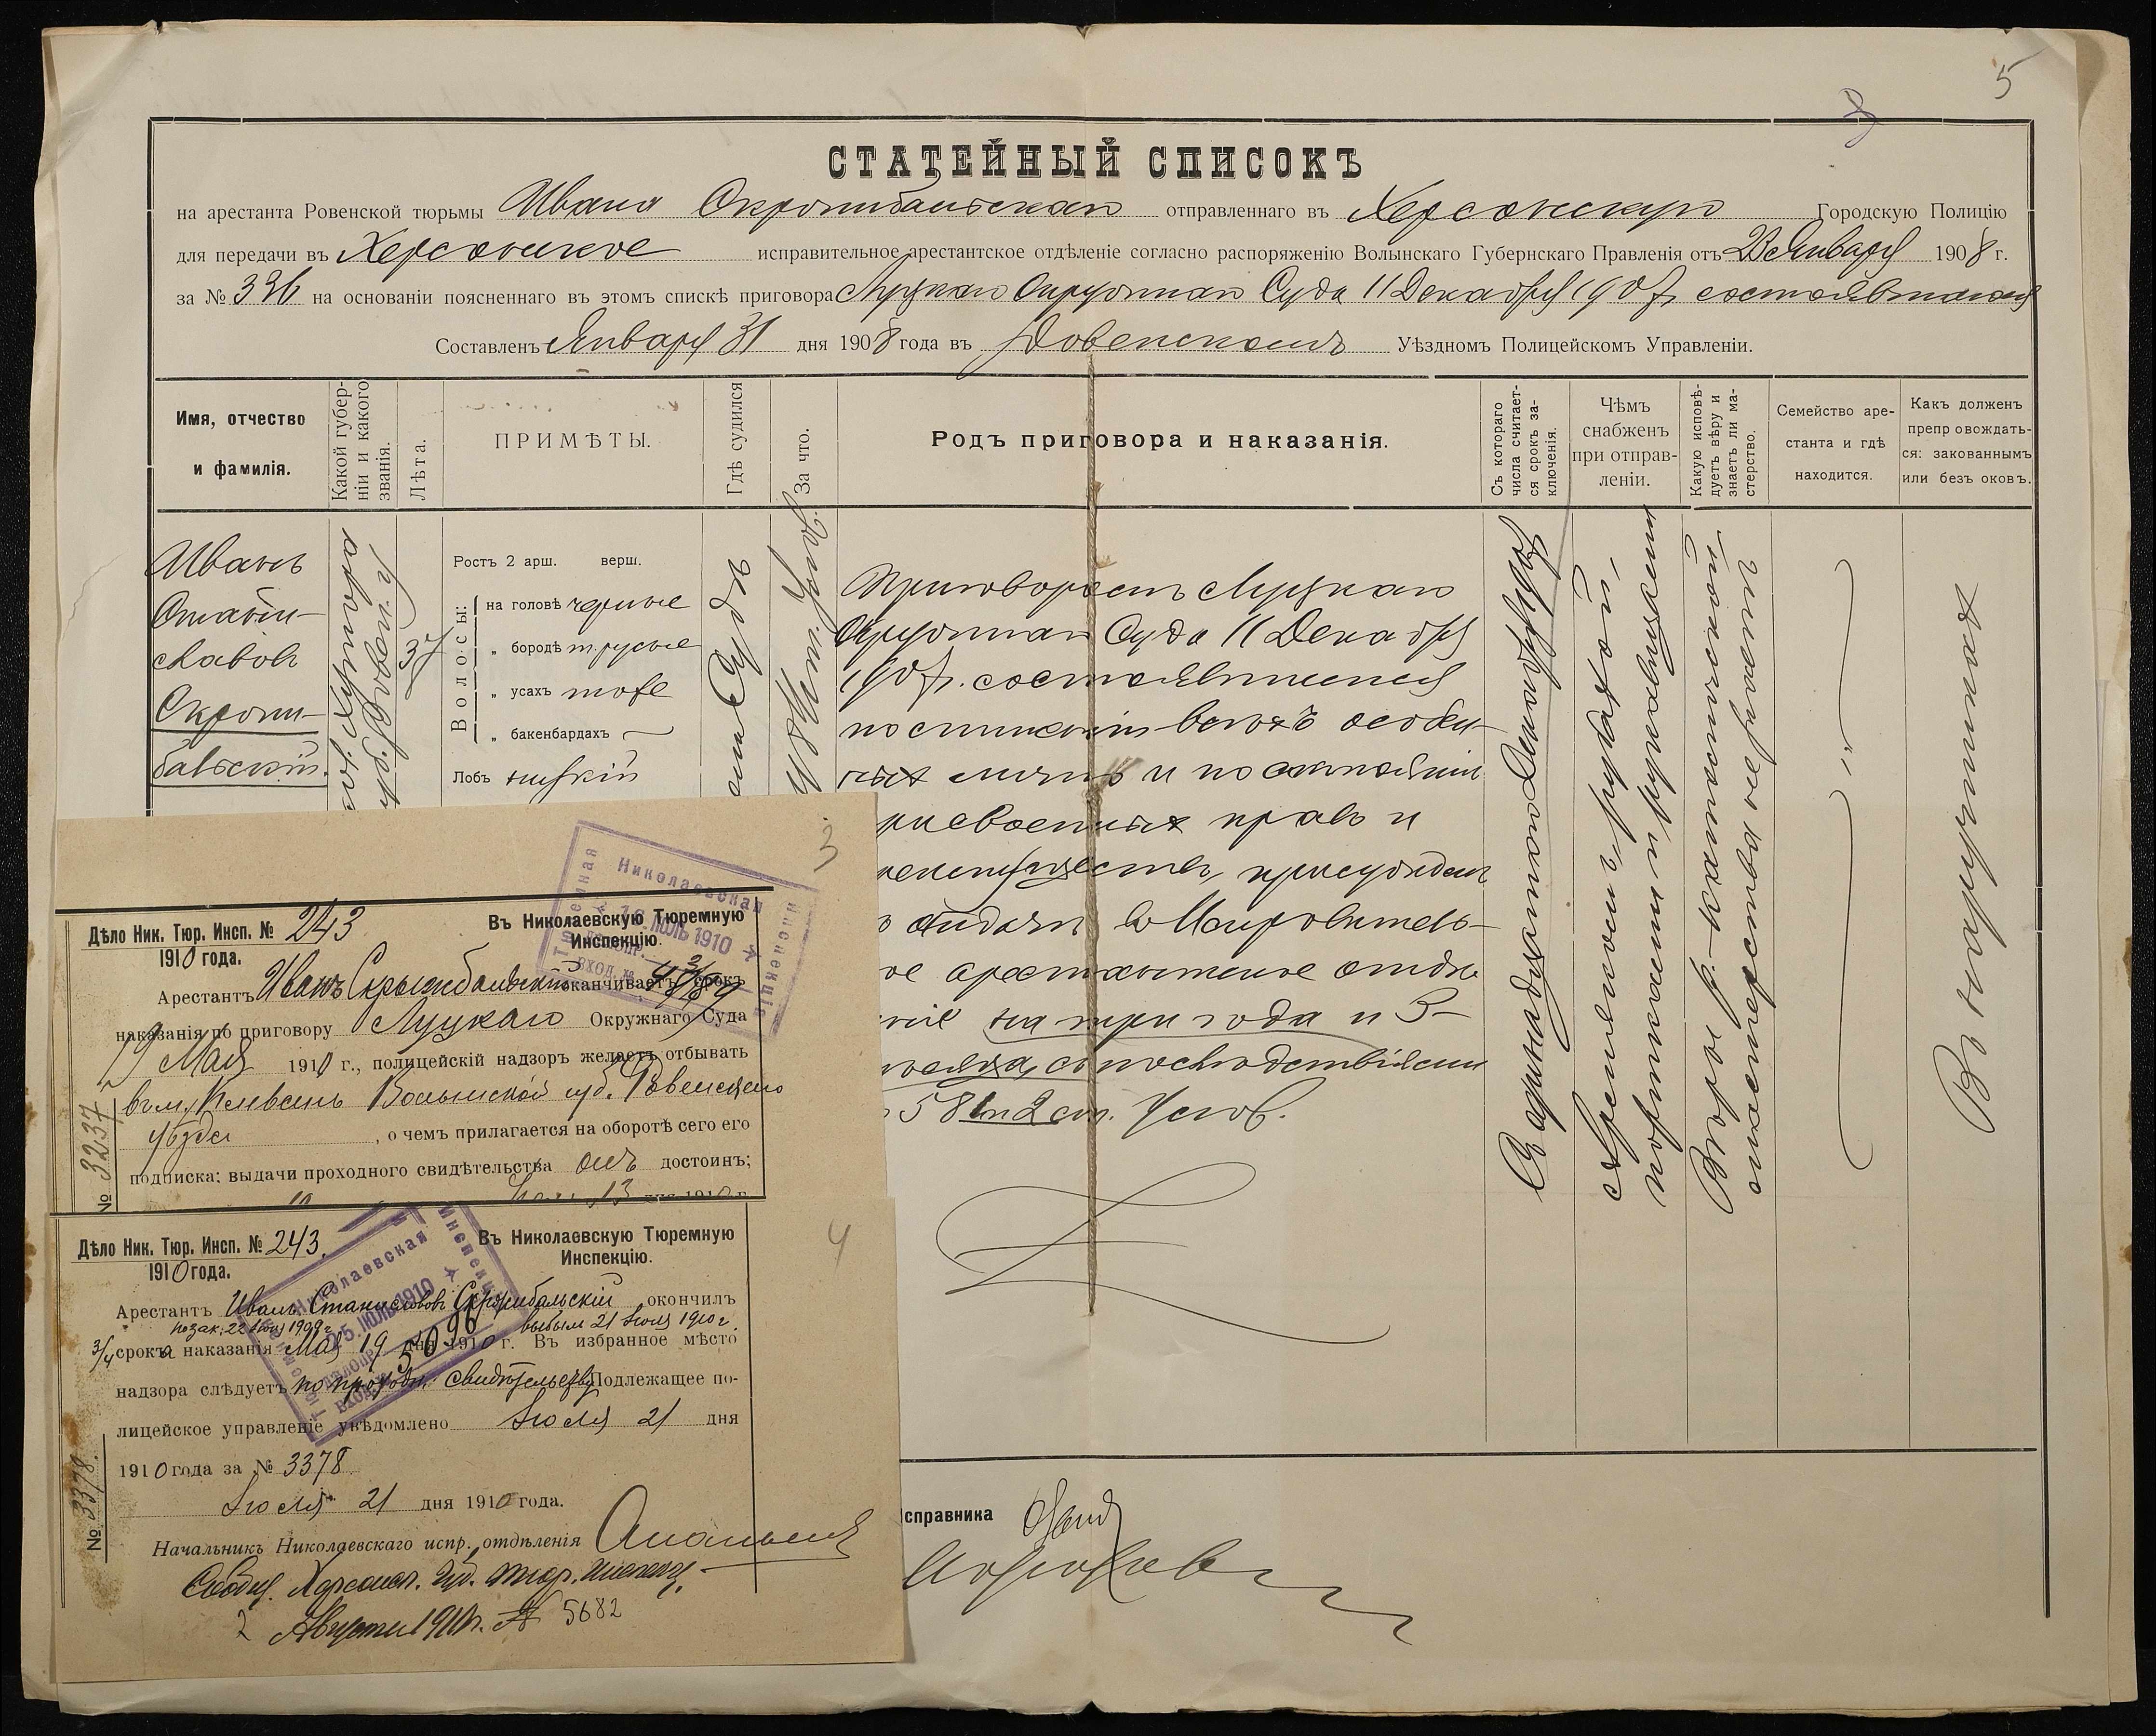 5
3
СТАТЕЙНЫЙ СПИСОКЪ
на арестанта Ровенской тюрьмы Ивана Скрошибальскаго отправленнаго въ Херсонскую Городскую Полицію
для передачи въ Херсонское исправительное арестантское отдѣленіе согласно распоряженію Волынскаго Губернскаго Правленія отъ Января 1908 г.
за № 336 на основаніи поясненнаго въ этомъ спискѣ приговора Луцкаго Окружнаго Суда 11 Декабря 1907 г. состоявшагося
Составленъ Января 31 дня 1908 года въ Ровенскомъ Уѣздномъ Полицейскомъ Управленіи.
Имя, отчество
и фамилія.
Какой губер-
ніи и какого
званія.
Лѣта.
ПРИМѢТЫ.
Гдѣ судился
За что.
Родъ приговора и наказанія.
Съ котораго
числа считает-
ся срокъ за-
ключенія.
Чѣмъ
снабженъ
при отправ-
леніи.
Какую исповѣ-
дуетъ вѣру и
знаетъ ли ма-
стерство.
Семейство аре-
станта и гдѣ
находится.
Какъ долженъ
препр овождать-
ся: закованнымъ
или безъ оковъ.
Иванъ
Стани-
славовъ
Скроши-
бальскій.
37
Ростъ 2 арш. верш.
Волосы:
на головѣ черные
„ бородѣ т. русые
„ усахъ тоже
„ бакенбардахъ —
Лобъ низкій
Судъ
Приговоромъ Луцкаго
Окружнаго Суда 11 Декабря
1907 г. состоявшемся
по лишеніи всѣхъ особен-
ныхъ лично и по состоянію
присвоенныхъ правъ и
преимуществъ, присужденъ
отдачѣ въ Исправитель-
ное арестантское отдѣ-
леніе на три года и 3
мѣсяца, съ послѣдствіями
581 и 2 ст. Улож.
Съ одиннадцатаго Декабря 1907
Армякомъ, рубахой,
портками и рукавицами
Вѣры р.-католической
мастерства не знаетъ
Въ наручникахъ
справника
3
Николаевская
Тюремная
Инспекція
ІЮЛЬ 1910
ВХОД. №
Дѣло Ник. Тюр. Инсп. № 243
1910 года.
Въ Николаевскую Тюремную
Инспекцію.
Арестантъ Иванъ Скрыжбальскій оканчиваетъ срокъ
наказанія по приговору Луцкаго Окружнаго Суда
19 Мая 1910 г., полицейскій надзоръ желаетъ отбывать
въ м. Клевань Волынской губ. Ровенскаго
уѣзда, о чемъ прилагается на оборотѣ сего его
подписка; выдачи проходного свидѣтельства онъ достоинъ;
13 дня 1910 г.
№ 3237
4
Николаевская
25. ІЮЛЬ 1910
5096
Дѣло Ник. Тюр. Инсп. № 243.
1910 года.
Въ Николаевскую Тюремную
Инспекцію.
Арестантъ Иванъ Станиславовъ Скрошибальскій окончилъ
по зак. 22 Іюня 1909 г. 21 Іюля 1910 г.
3/4 срокъ наказанія Мая 19 дня 1910 г. Въ избранное мѣсто
надзора слѣдуетъ по проходн. свидѣтельству Подлежащее по-
лицейское управленіе увѣдомлено Іюля 21 дня
1910 года за № 3378
Іюля 21 дня 1910 года.
№ 3378.
Начальникъ Николаевскаго испр. отдѣленія
Сообщ. Херсонск. Губ. тюр. инспекц.
2 Августа 1910 г. № 5682